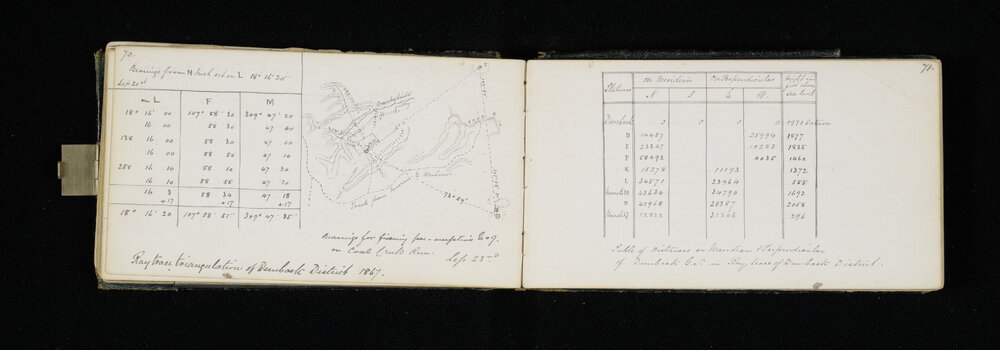 70.
Bearings from N Inch cut on L 18° 16' 20"
Sep 21st
on L F M
18° 16' 00 107° 58' 30 309° 47' 20
16 00 58 30 47 00
138 16 00 58 30 47 00
16 00 58 50 47 10
258 16 10 58 10 47 20
16 10 58 55 47 20
16 3 58 34 47 18
+17 +17 +17
18° 16' 20 107° 58' 51" 309° 47' 35"
F
72° 59'
Bearings for fixing pre-emptive
on Coal Creek Run. Sep 23rd
Ray trace triangulation of Dunback District 1867.
71.
Stations on Meridian On Perpendicular height in feet above sea level
N S E W
Dunback 0 0 0 0 1971 Datum
D 14457 25994 1877
E 23347 10283 1835
F 58492 4035 1460
K 15278 11193 1372
L 34571 23964 555
M 52634 34790 1692
N 47968 28387 2058
Q 12822 31366 296
Table of Distances on Meridian & Perpendicular
of Dunback G.S. in Ray trace of Dunback District.